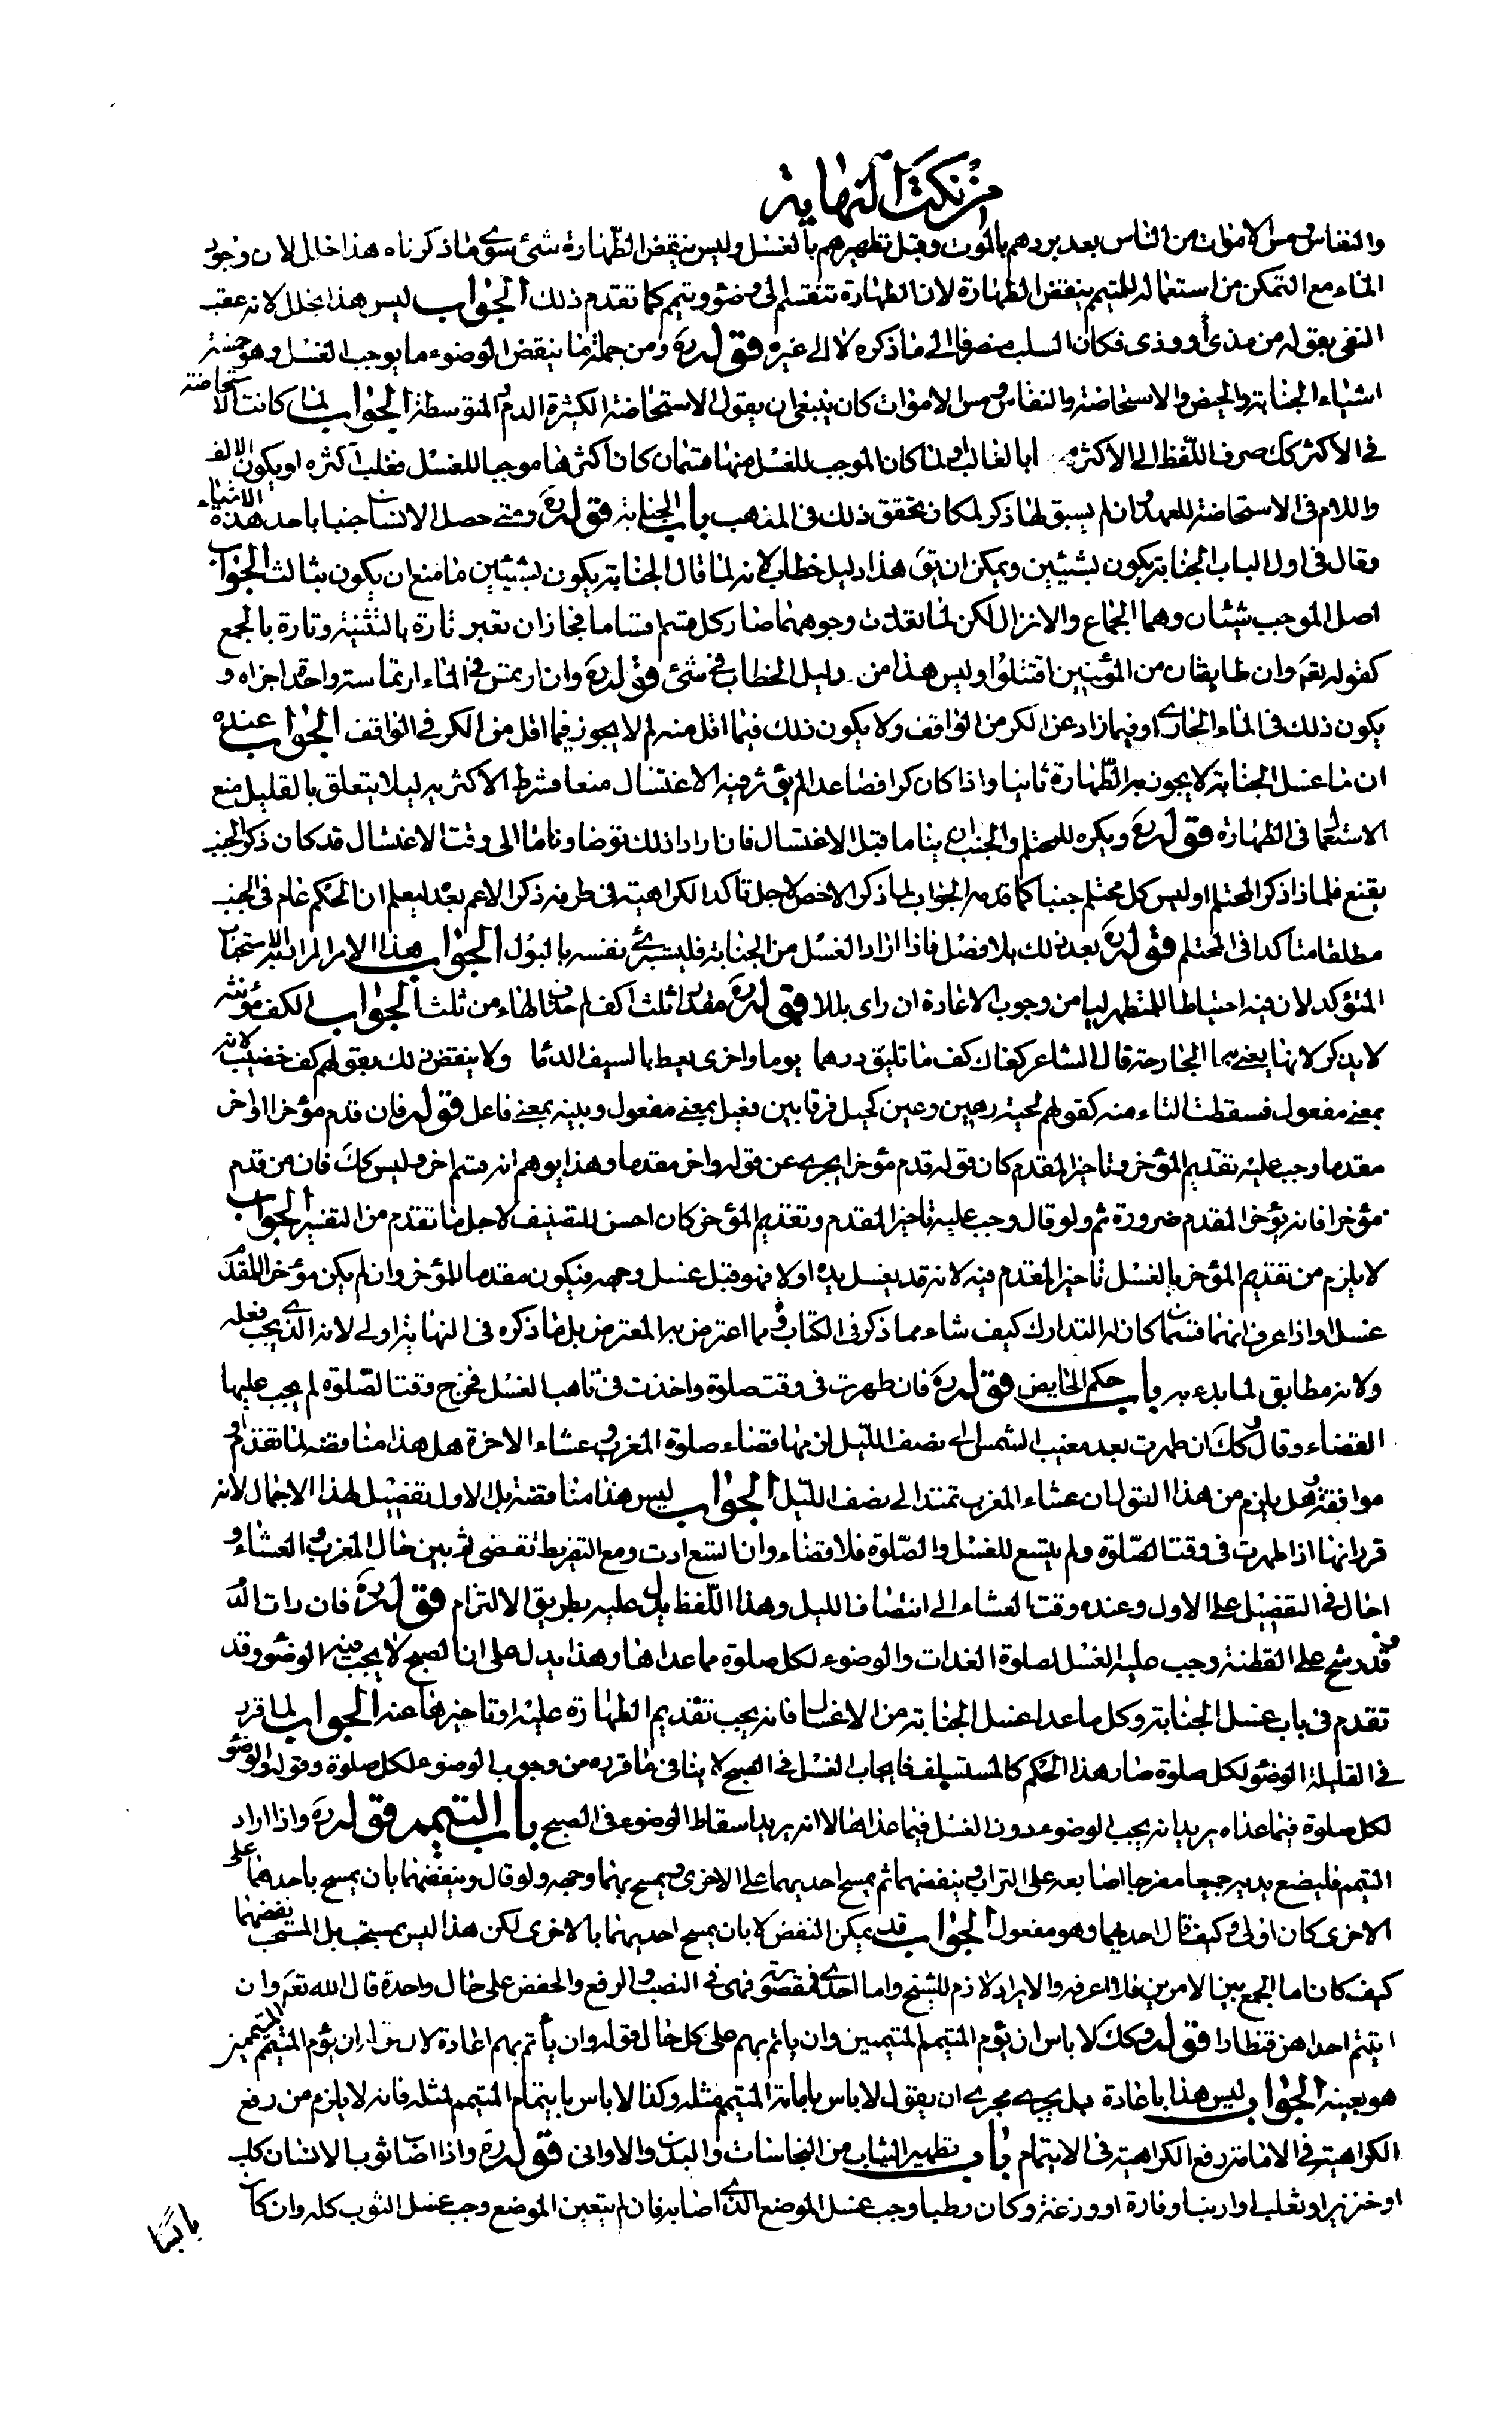 من نكت النهاية
والنفاس ومس الاموات من الناس بعد بردهم بالموت وقبل تطهيرهم بالغسل وليس ينقض الطهارة شئ سوى ما ذكرناه هذا خال لان وجود
الماء مع التمكن من استعماله للمتيمم ينقض الطهارة لان الطهارة تنقسم الى وضوء وتيمم كما تقدم ذلك الجواب ليس هذا بخلل لانه عقب
النفى بقوله من مذى أو وذى فكان السلب منصرفا الى ما ذكره لا الى غيره قوله ره ومن جملة ما ينقض الوضوء ما يوجب الغسل وهو خمسة
اشياء الجنابة والحيض والاستحاضة والنفاس ومس الاموات كان ينبغى ان يقول الاستحاضة الكثيرة الدم والمتوسطة الجواب لما كانت الاستحاضة
فى الاكثر كك صرف اللفظ الى الاكثر ابا لغالب ولما كان الموجب للغسل منها قسمان كان اكثرها موجبا للغسل فغلب اكثره او يكون الالف
واللام فى الاستحاضة للعهد وان لم يسبق لها ذكر لمكان تحقق ذلك فى المذهب باب الجنابة قوله ره ومتى حصل الانسان جنبا باحد هذه الاشياء
وقال فى اول الباب الجنابة يكون بشيئين ويمكن ان يق هذا دليل خطاب لانه لما قال الجنابة يكون بشيئين ما منع ان يكون بثالث الجواب
اصل الموجب شيئان وهما الجماع والانزال لكن لما تعددت وجوههما صار كل قسم اقساما فجاز ان تعبر تارة بالتثنية وتارة بالجمع
كقوله تعم وان طايفتان من المؤمنين اقتتلوا وليس هذا من دليل الخطاب فى شئ قوله ره وان ارتمس فى الماء ارتماسة واحدة اجزاه و
يكون ذلك فى الماء الجارى او فيما زاد عن الكر من الواقف ولا يكون ذلك فيما اقل منه لم لا يجوز فيما اقل من الكر فى الواقف الجواب عنده
ان ماء غسل الجنابة لا يجوز به الطهارة ثانيا واذا كان كرا فصاعدا لم يؤثر فيه الاغتسال منعا فشرط الاكثرية ليلا يتعلق بالقليل منع
الاستعمال فى الطهارة قوله ره ويكره للمحتلم والجنب ان يناما قبل الاغتسال فان اراد ذلك توضا وناما الى وقت الاغتسال قد كان ذكر الجنب
يقنع فلماذا ذكر المحتلم او ليس كل محتلم جنبا كما قدمه الجواب لما ذكر الاخص لاجل تاكد الكراهية فى طرفه ذكر الاعم بعد ليعلم ان الحكم عام فى الجنب
مطلقا متاكدا فى المحتلم قوله ره بعد ذلك بلا فصل فاذا اراد الغسل من الجنابة فليستبرئ نفسه بالبول الجواب هذا الامر المراد به الاستحباب
المتؤكد لان فيه احتياطا للمتطهر ليامن وجوب الاعادة ان راى بللا قوله ره مقدار ثلث اكف لم حذف الهاء من ثلث الجواب الكف مؤنثة
لا يذكر لانها يعنى بها الجارحة قال الشاعر كفاك كف ما تليق درهما يوما واخرى يعط بالسيف الدما ولا ينقض ذلك بقولهم كف خضيب لانه
بمعنى مفعول فسقطت التاء منه كقولهم لحية دهين وعين كحيل فرقا بين فعيل بمعنى مفعول وبينه بمعنى فاعل قوله فان قدم مؤخرا او اخر
مقدما وجب عليه تقديم المؤخر وتاخير المقدم كان قوله قدم مؤخرا يجزى عن قوله واخر مقدما وهذا يوهم انه قسم اخر وليس كك فان من قدم
مؤخرا فانه يؤخر المقدم ضرورة ثم ولو قال وجب عليه تاخير المقدم وتقديم المؤخر كان احسن للتصنيف لاجل ما تقدم من التقسيم الجواب
لا يلزم من تقديم المؤخر بالغسل تاخير المقدم فيه لانه قد يغسل يده اولا فهو قبل غسل وجهه فيكون مقدما للمؤخر وان لم يكن مؤخرا للمقدم
غسلا واذا عرف انهما قسمان كان له التدارك كيف شاء مما ذكر فى الكتاب وفى ما اعترض به المعترض بل ما ذكره فى النهاية اولى لانه الذى يجب فعله
ولانه مطابق لما بدء به باب حكم الحايض قوله ره فان طهرت فى وقت صلوة واخذت فى تاهب الغسل فخرج وقت الصلوة لم يجب عليها
القضاء وقال وكك ان طهرت بعد مغيب الشمس الى نصف الليل لزمها قضاء صلوة المغرب وعشاء الاخرة هل هذا مناقضة لما تقدم او
موافقة وهل يلزم من هذا القول ان عشاء المغرب تمتد الى نصف الليل الجواب ليس هذا مناقضة بل الاول تفصيل لهذا الاجمال لانه
قرر انها اذا طهرت فى وقت الصلوة ولم يتسع للغسل والصلوة فلا قضاء وان اتسع ادت ومع التفريط تقضى ثم بين حال المغرب والعشاء و
احال فى التفصيل على الاول وعنده وقت العشاء الى انتصاف الليل وهذا اللفظ يدل عليه بطريق الالتزام قوله ره فان رات الدم
قد رشح على القطنة وجب عليه الغسل لصلوة الغداة والوضوء لكل صلوة مما عداها وهذا يدل على ان الصبح لا يجب فيه الوضوء وقد
تقدم فى باب غسل الجنابة وكل ما عدا غسل الجنابة من الاغسال فانه يجب تقديم الطهارة عليه او تاخيرها عنه الجواب لما قرر
فى القليلة الوضوء لكل صلوة صار هذا الحكم كالمستسلف فايجاب الغسل فى الصبح لا ينافى ما قرره من وجوب الوضوء لكل صلوة وقوله والوضوء
لكل صلوة فيما عداه يريد انه يجب الوضوء دون الغسل فيما عداها لا انه يريد اسقاط الوضوء فى الصبح باب التيمم قوله ره واذا اراد
التيمم فليضع يديه جميعا مفرجا اصابعه على التراب وينفضهما ثم يمسح احديهما على الاخرى ويمسح بهما وجهه ولو قال وينفضهما بان يمسح باحدهما على
الاخرى كان اولى وكيف قال احديهما وهو مفعول الجواب قد يمكن النفض لا بان يمسح احديهما بالاخرى لكن هذا ليس بمستحب بل المستحب نفضهما
كيف كان اما الجمع بين الامرين فلا اعرفه والايراد لازم للشيخ واما احدى فمقصورة فهى فى النصب والرفع والخفض على حال واحدة قال الله تعم وان
اتيتم احداهن قنطارا قوله وكك لا باس ان يؤم المتيمم المتيممين وان ياتم بهم على كل حال قوله وان يأتم بهم اعادة لان ان يؤم المتيمم المتيممين
هو بعينه الجواب ليس هذا باعادة بل يجرى مجرى ان يقول لا باس بامامة المتيمم مثله وكذا لا باس بايتمام المتيمم لمثله فانه لا يلزم من رفع
الكراهية فى الامامة رفع الكراهية فى الايتمام باب تطهير الثياب من النجاسات والبدن والاوانى قوله ره واذا اصاب ثوب الانسان كلب
او خنزير او ثعلب او ارنب او فارة او وزغة وكان رطبا وجب غسل الموضع الذى اصابه فان لم يتعين الموضع وجب غسل الثوب كله وان كان
يابسا